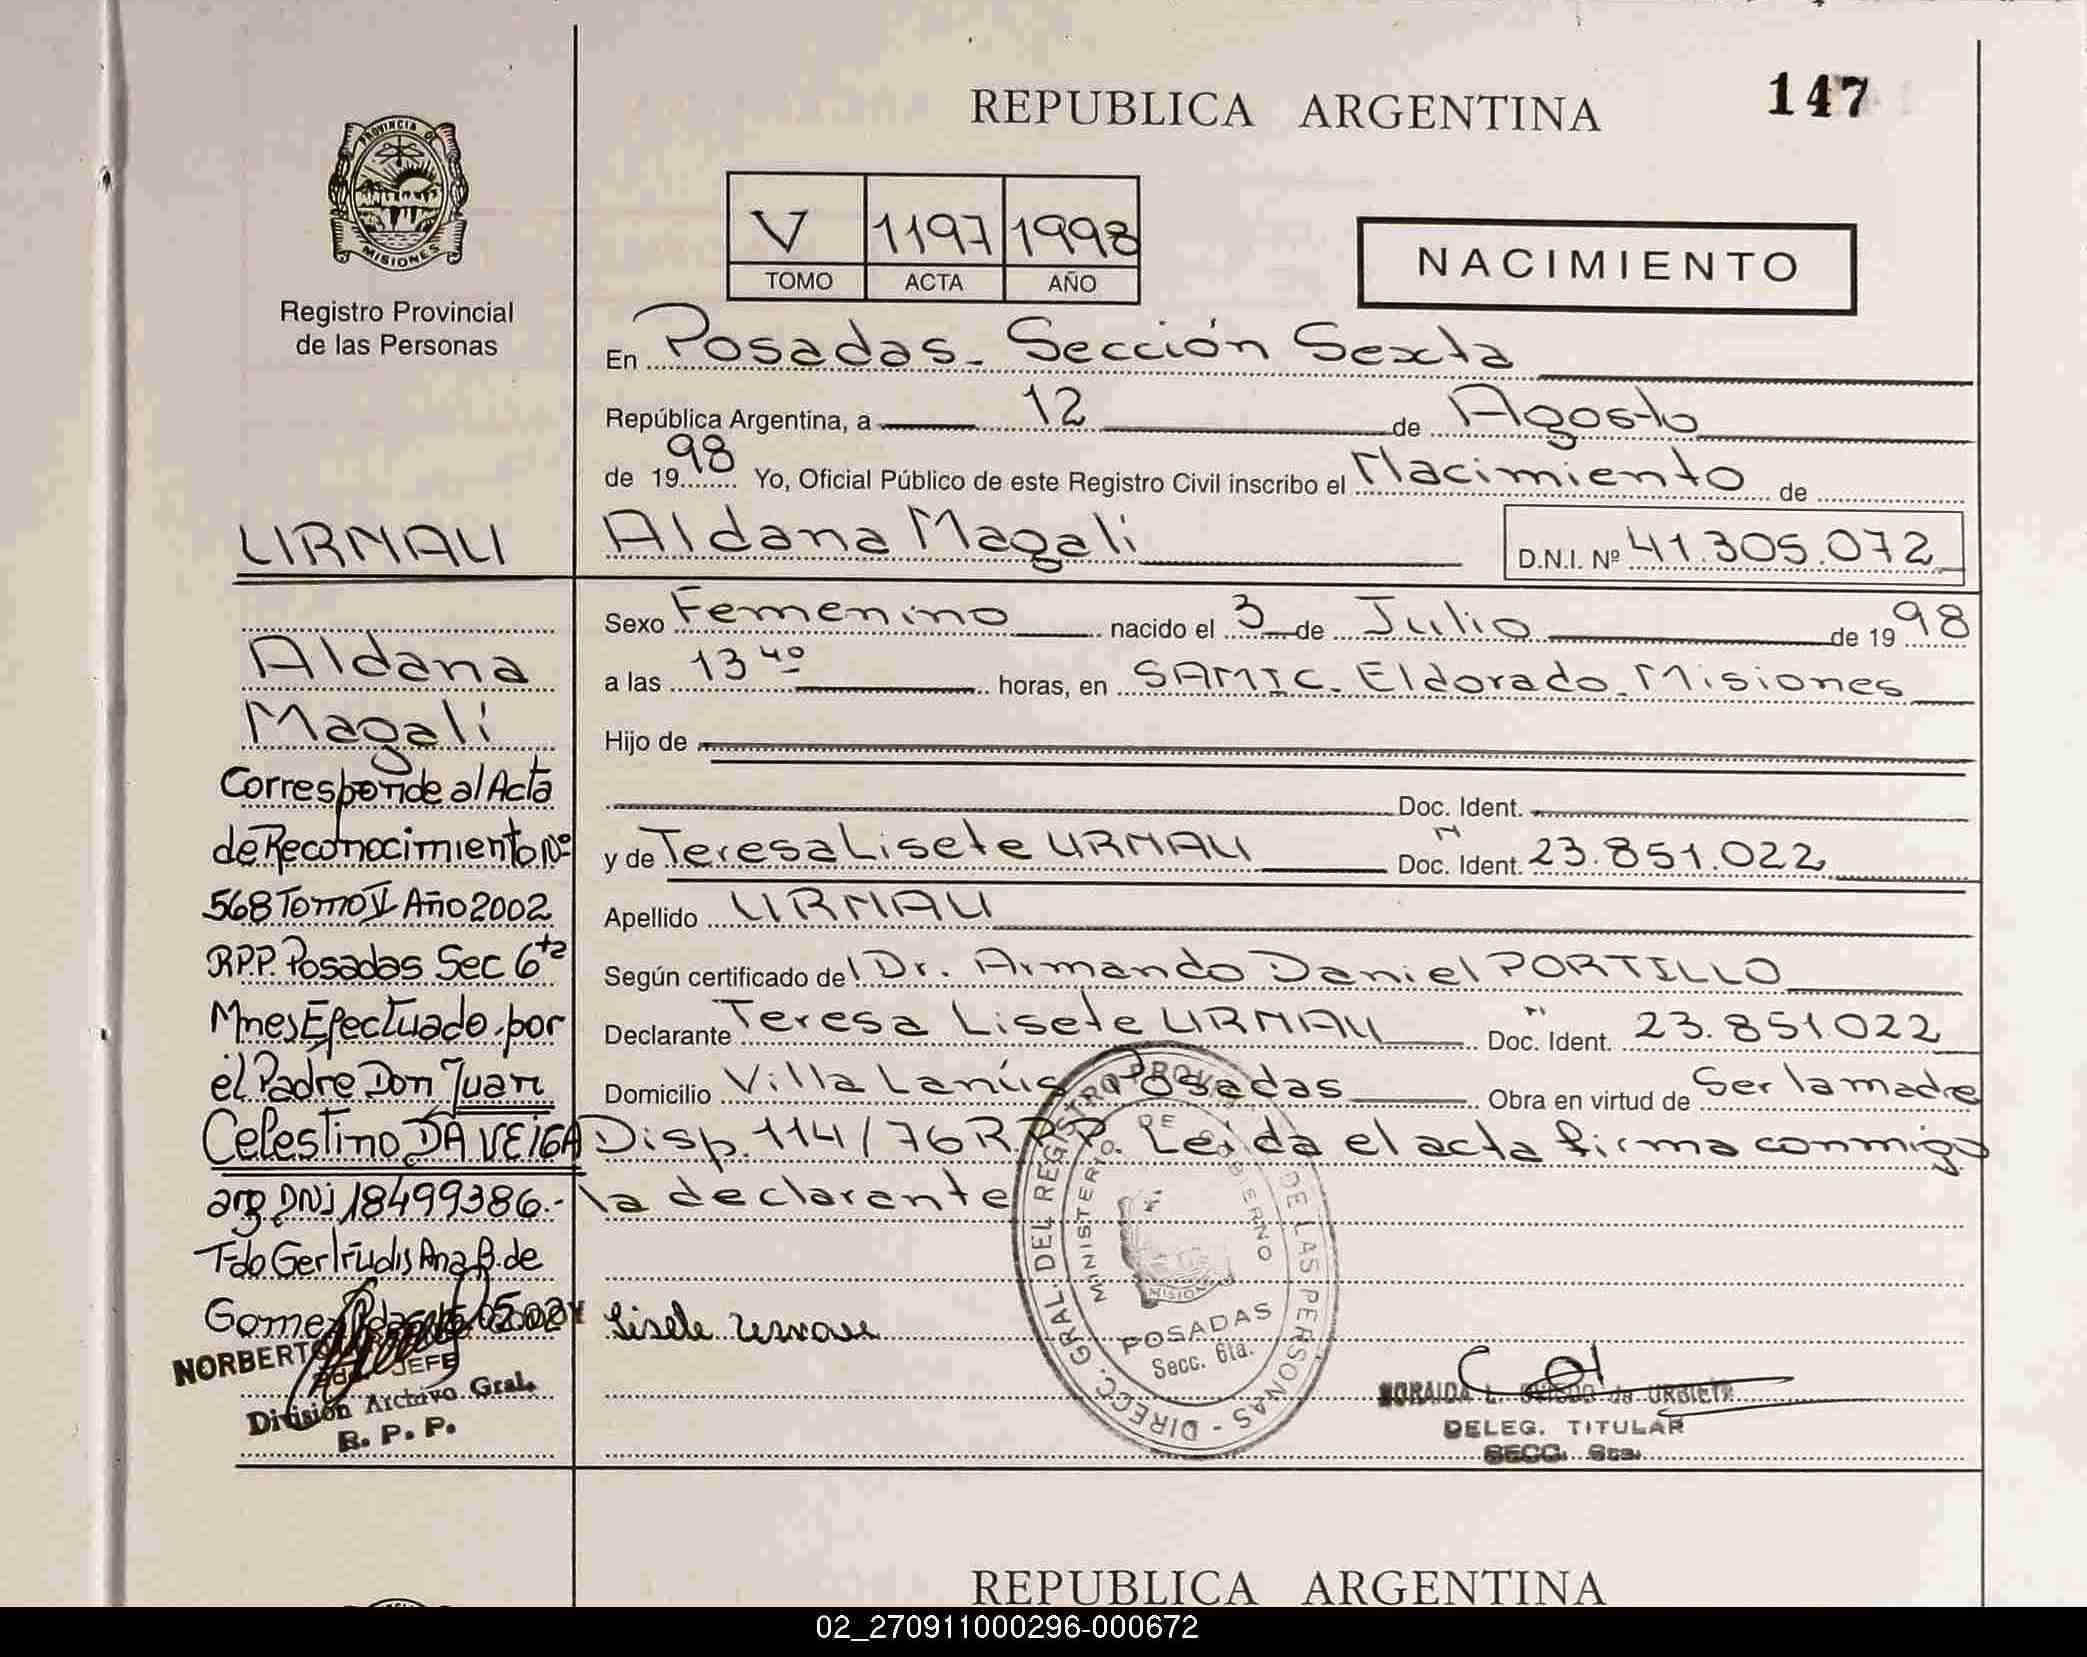 REPUBLICA ARGENTINA
147
PROVINCIA DE
MISIONES
Registro Provincial
de las Personas
V 1197 1998
TOMO ACTA AÑO
NACIMIENTO
En Posadas - Sección Sexta
República Argentina, a 12 de Agosto
de 1998 Yo, Oficial Público de este Registro Civil inscribo el Nacimiento de
URNAU Aldana Magali D.N.I. Nº 41.305.072
Sexo Femenino nacido el 3 de Julio de 1998
a las 13 40 horas, en SAMIC. Eldorado. Misiones
Hijo de
Doc. Ident.
y de Teresa Lisete URNAU Doc. Ident. N 23.851.022
Apellido URNAU
Según certificado del Dr. Armando Daniel PORTILLO
Declarante Teresa Lisete URNAU Doc. Ident. N 23.851.022
Domicilio Villa Lanús Posadas Obra en virtud de Ser la madre
Disp. 114/76 R.P.P. Leída el acta firma conmigo
la declarante
Aldana
Magali
Corresponde al Acta
de Reconocimiento Nº
568 Tomo V Año 2002
R.P.P. Posadas Sec 6ta
Mnes Efectuado por
el Padre Don Juan
Celestino DA VEIGA
arg DNI 18499386.-
T-do Gertrudis Ana B. de
Gomez
NORBERTO
JEFE
División Archivo Gral.
R. P. P.
Lisete Urnau
DIRECC. GRAL. DEL REGISTRO PROV. DE LAS PERSONAS -
MINISTERIO DE GOBIERNO
MISIONES
POSADAS
Secc. 6ta.
NORAIDA L. OVIEDO de URBIETA
DELEG. TITULAR
SECC. 6ta.
REPUBLICA ARGENTINA
02_270911000296-000672